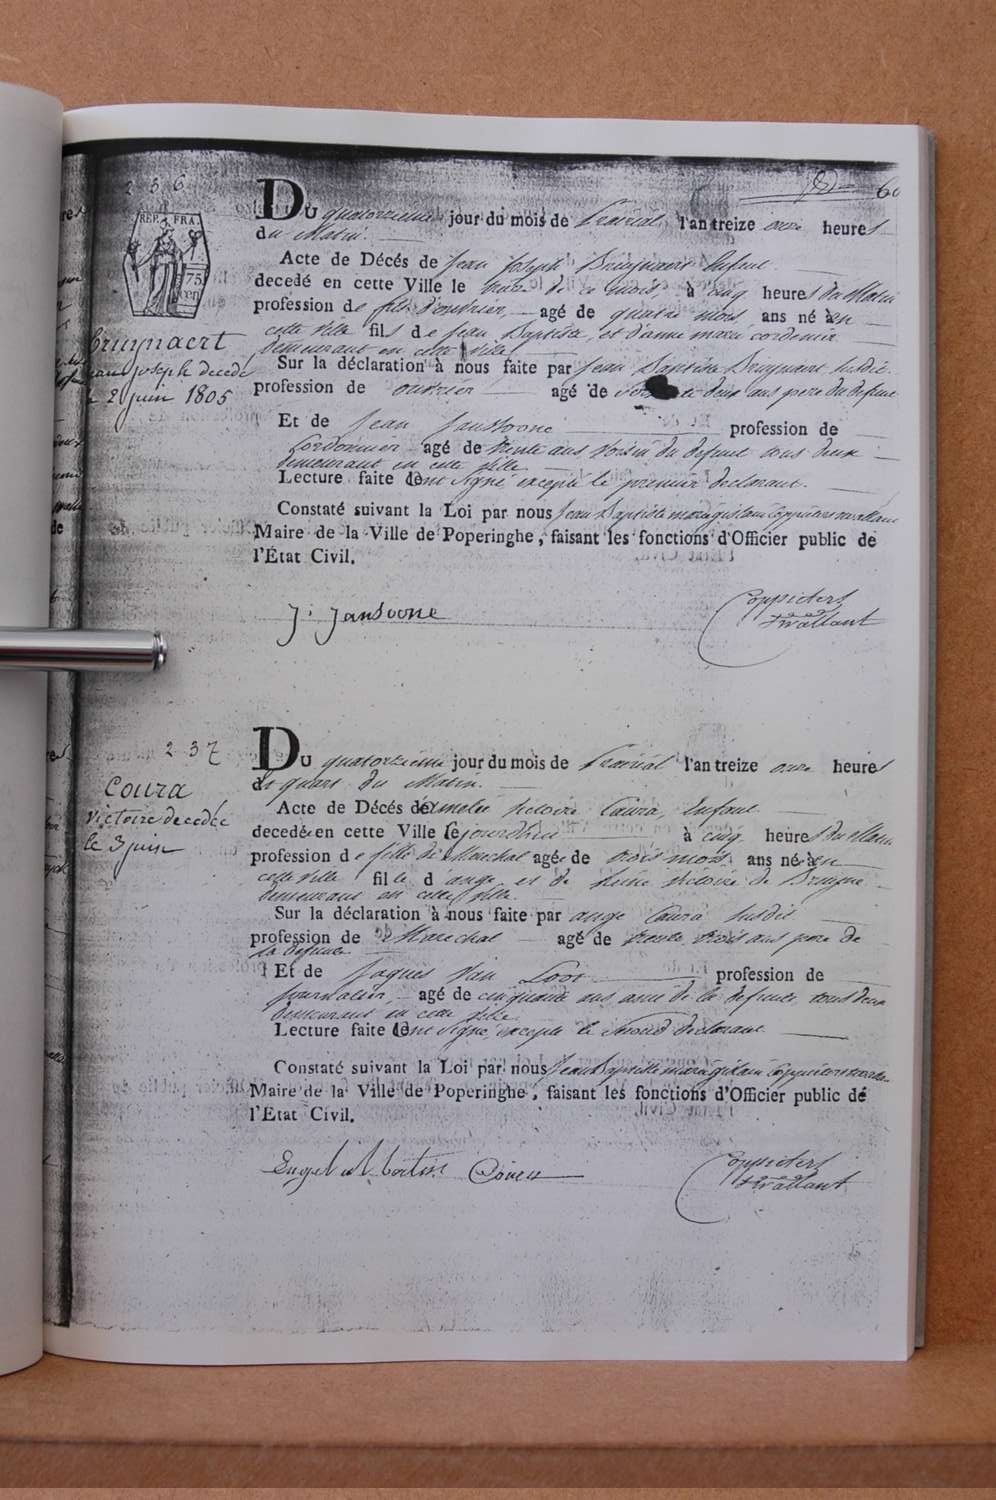 236
60
REP. FRA.
75
CEN
Bruynaert
jean joseph decedé
le 2 juin 1805
Du quatorzieme jour du mois de Prairial l'an treize onze heures
du Matin.
Acte de Décés de Jean Joseph Bruynaert Enfant
decedé en cette Ville le treize de ce mois, à cinq heures du Matin
profession de fils d'ouvrier, agé de quatre mois ans né à en
cette ville fils de Jean Baptiste, et d'anne marie cordenier
demeurant en cette ville
Sur la déclaration à nous faite par Jean Baptiste Bruynaert susdit
profession de ouvrier agé de deux ans pere du defunt
Et de Jean Jansoone profession de
Cordonnier agé de trente ans voisin du defunt tous deux
demeurant en cette ville
Lecture faite ont signé excepté le premier declarant.
Constaté suivant la Loi par nous Jean Baptiste
Maire de la Ville de Poperinghe, faisant les fonctions d'Officier public de
l'État Civil.
J. Jansoone
Coppieters
Twallant
237
Coura
Victoire decedée
le 3 juin
Du quatorzieme jour du mois de Prairial l'an treize onze heures
quart du Matin.
Acte de Décés de Amelie Victoire Coura, Enfant
decedé en cette Ville le jourdhui à cinq heures du Matin
profession de fille de Marechal agé de trois mois ans né à en
cette ville fille d'ange et de Reine Victoire de Bruyne
demeurant en cette ville.
Sur la déclaration à nous faite par ange Coura susdit
profession de Marechal agé de trente trois ans pere de
la defunte
Et de Jaques Van Loo profession de
journalier agé de cinquante ans ami de la defunte tous deux
demeurant en cette ville
Lecture faite ont signé, excepté le second declarant
Constaté suivant la Loi par nous Jean Baptiste
Maire de la Ville de Poperinghe, faisant les fonctions d'Officier public de
l'État Civil.
Coppieters
Twallant